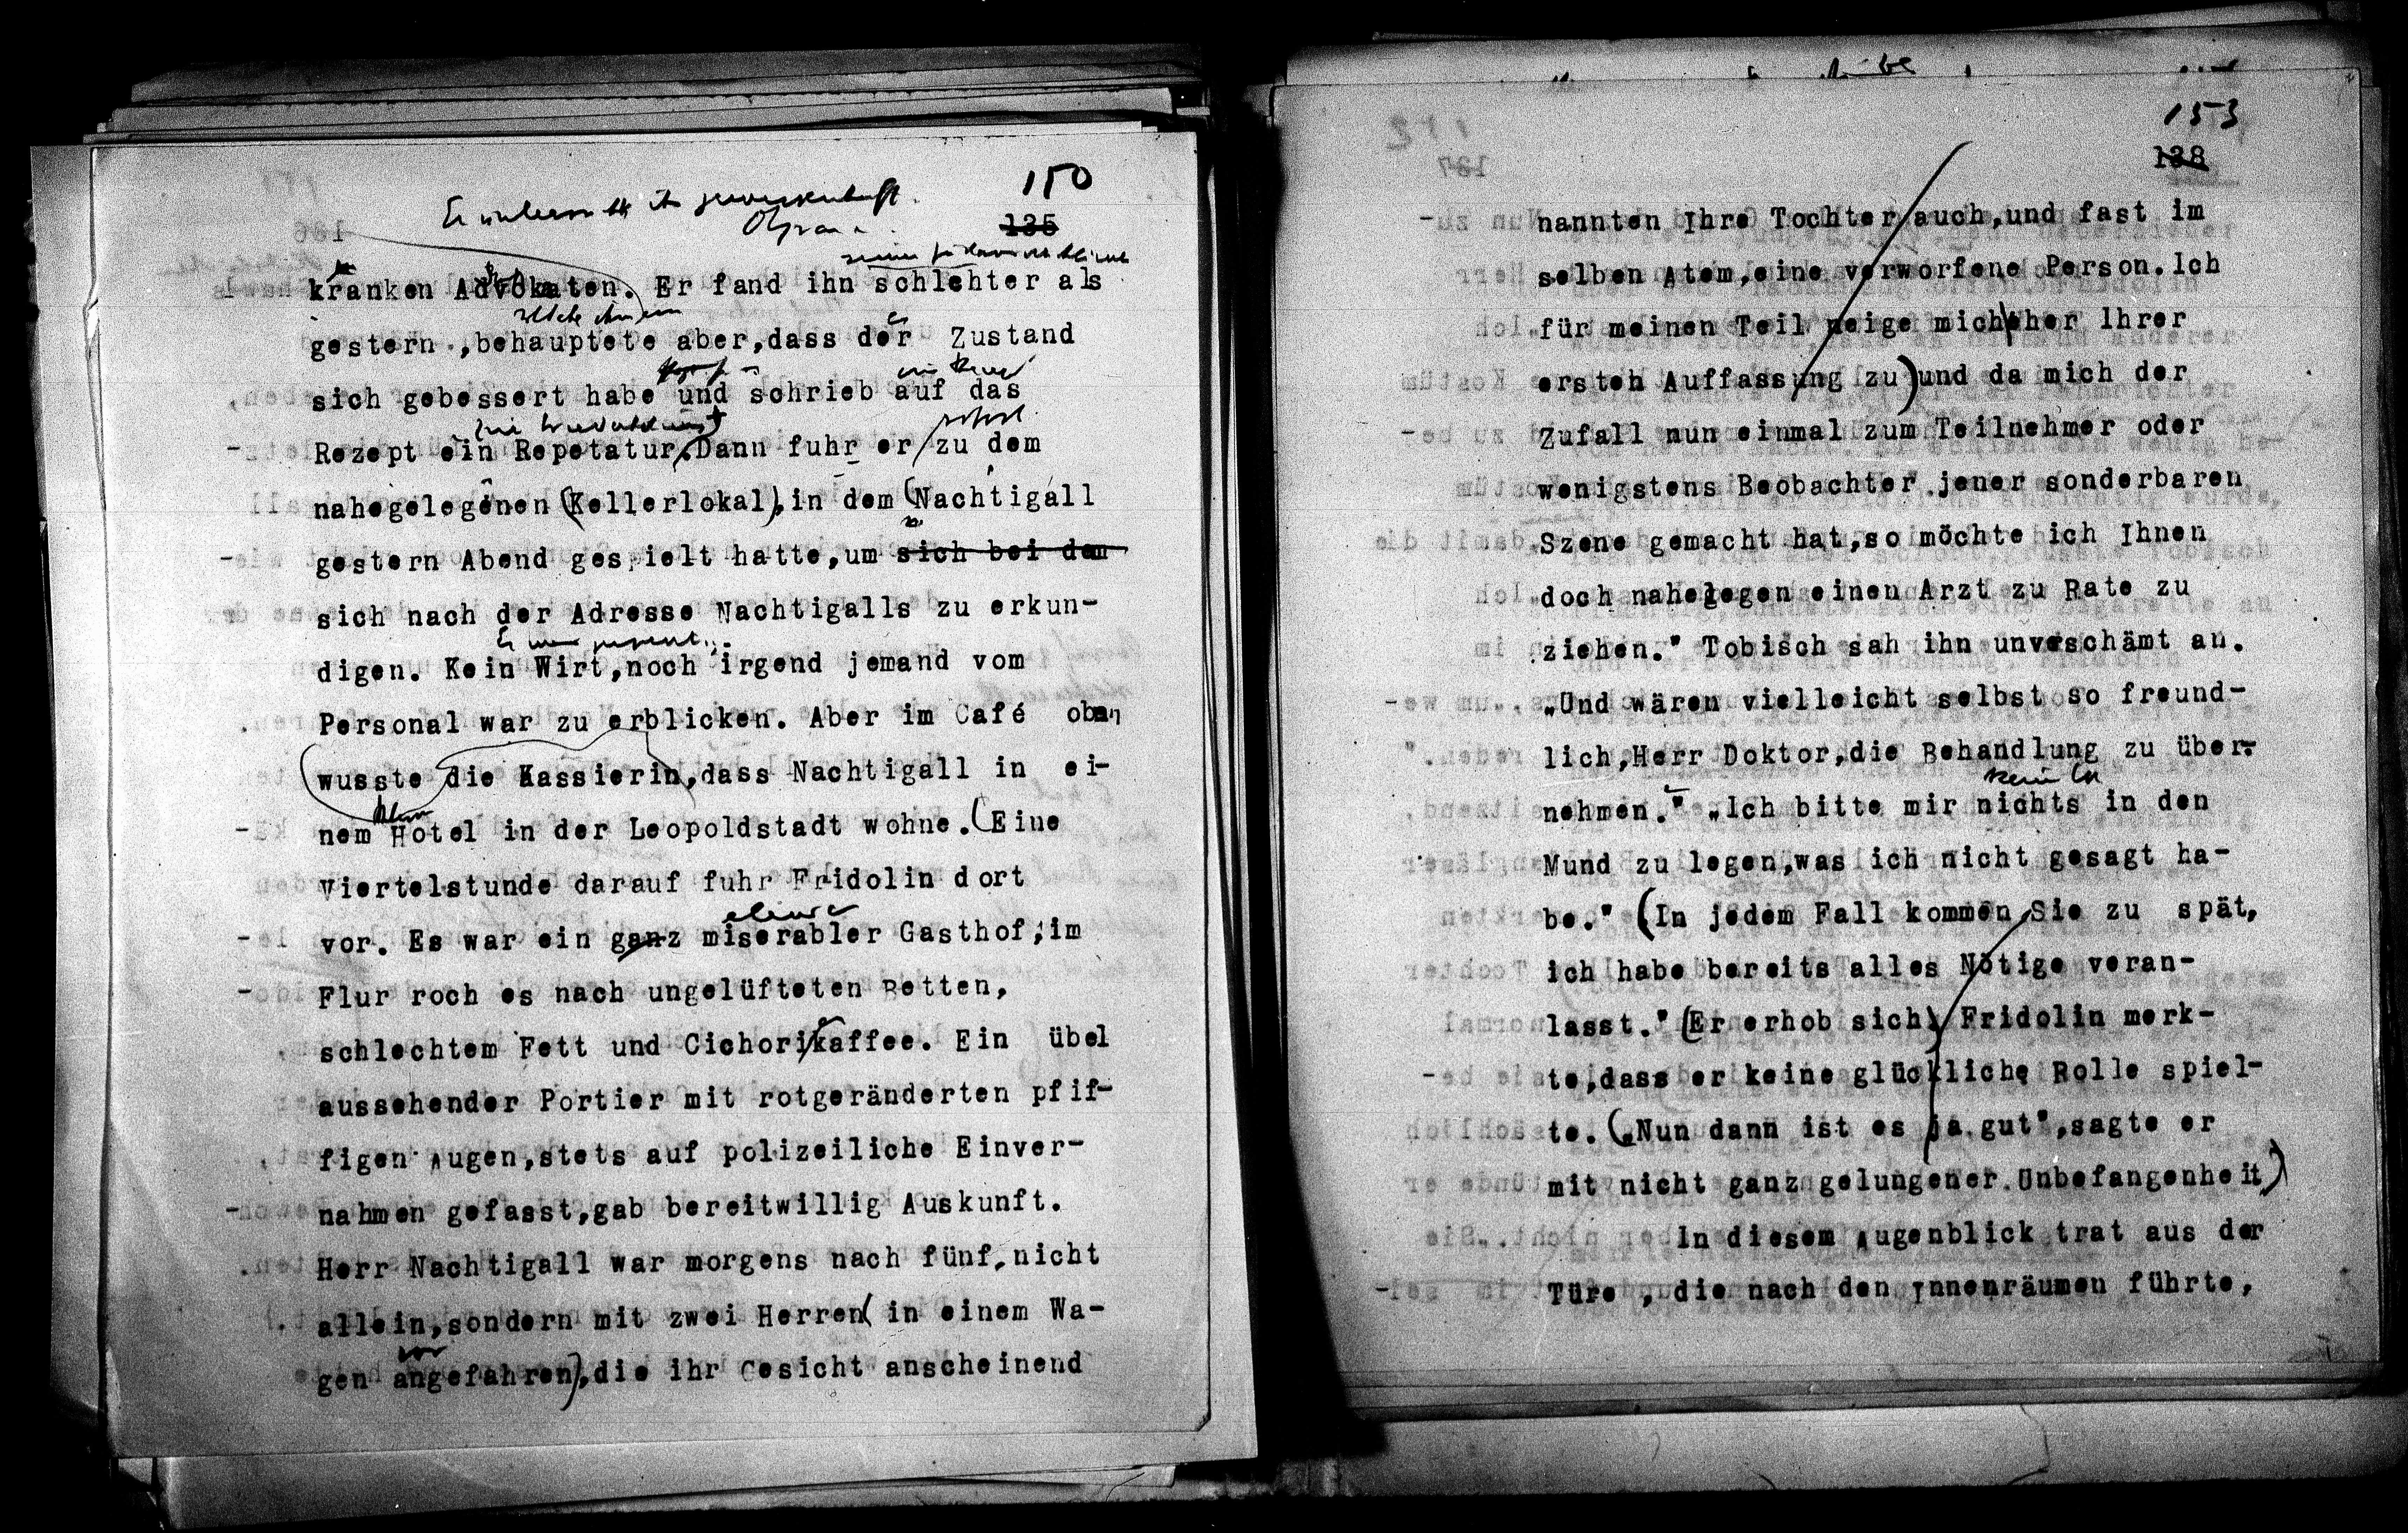 150
135
kranken Advokaten. Er fand ihn schlechter als
gestern, behauptete aber, dass der Zustand
sich gebessert habe und schrieb auf das
Rezept ein Repetatur. Dann fuhr er zu dem
nahegelegenen (Kellerlokal), in dem (Nachtigall
gestern Abend gespielt hatte, um sich bei dem
sich nach der Adresse Nachtigalls zu erkun-
digen. Kein Wirt, noch irgend jemand vom
Personal war zu erblicken. Aber im Café oben
(wusste die Kassierin, dass Nachtigall in ei-
nem Hotel in der Leopoldstadt wohne. (Eine
Viertelstunde darauf fuhr Fridolin dort
elender
vor. Es war ein ganz miserabler Gasthof, im
Flur roch es nach ungelüfteten Betten,
schlechtem Fett und Cichorikaffee. Ein übel
aussehender Portier mit rotgeränderten pfif-
figen Augen, stets auf polizeiliche Einver-
nahmen gefasst, gab bereitwillig Auskunft.
Herr Nachtigall war morgens nach fünf, nicht
allein, sondern mit zwei Herren (in einem Wa-
vor
gen angefahren), die ihr Gesicht anscheinend
153
138
nannten Ihre Tochter auch, und fast im
selben Atem, eine verworfene Person. Ich
für meinen Teil neige mich eher Ihrer
ersten Auffassung zu) und da mich der
Zufall nun einmal zum Teilnehmer oder
wenigstens Beobachter jener sonderbaren
Szene gemacht hat, so möchte ich Ihnen
doch nahelegen einen Arzt zu Rate zu
ziehen." Tobisch sah ihn unverschämt an.
„Und wären vielleicht selbst so freund-
lich, Herr Doktor, die Behandlung zu über-
nehmen." „Ich bitte mir nichts in den
Mund zu legen, was ich nicht gesagt ha-
be." (In jedem Fall kommen Sie zu spät,
ich habe bereits alles Nötige veran-
lasst." (Er erhob sich) Fridolin merk-
te, dass er keine glückliche Rolle spiel-
te. („Nun dann ist es ja gut", sagte er
mit nicht ganz gelungener Unbefangenheit)
In diesem Augenblick trat aus der
Türe, die nach den Innenräumen führte,